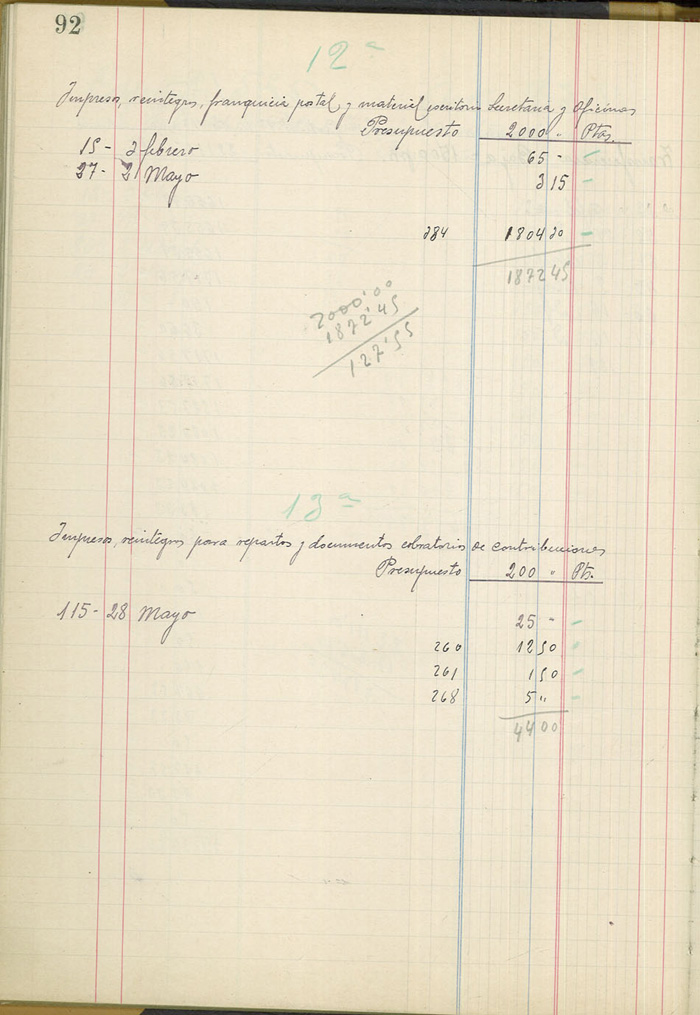 92
12ª
Impresos, reintegros, franquicia postal y material escritorio Secretaria y Oficinas
Presupuesto 2000 " Ptas.
15 - 3 febrero 65 -
27 - 21 Mayo 3 15 -
284 1804 30 -
1872 45
2000'00
1872'45
127'55
13ª
Impresos, reintegros para repartos y documentos cobratorios de contribuciones
Presupuesto 200 " Pts.
115 - 28 Mayo 25 " -
260 12 50 -
261 1 50 -
268 5 " -
44 00